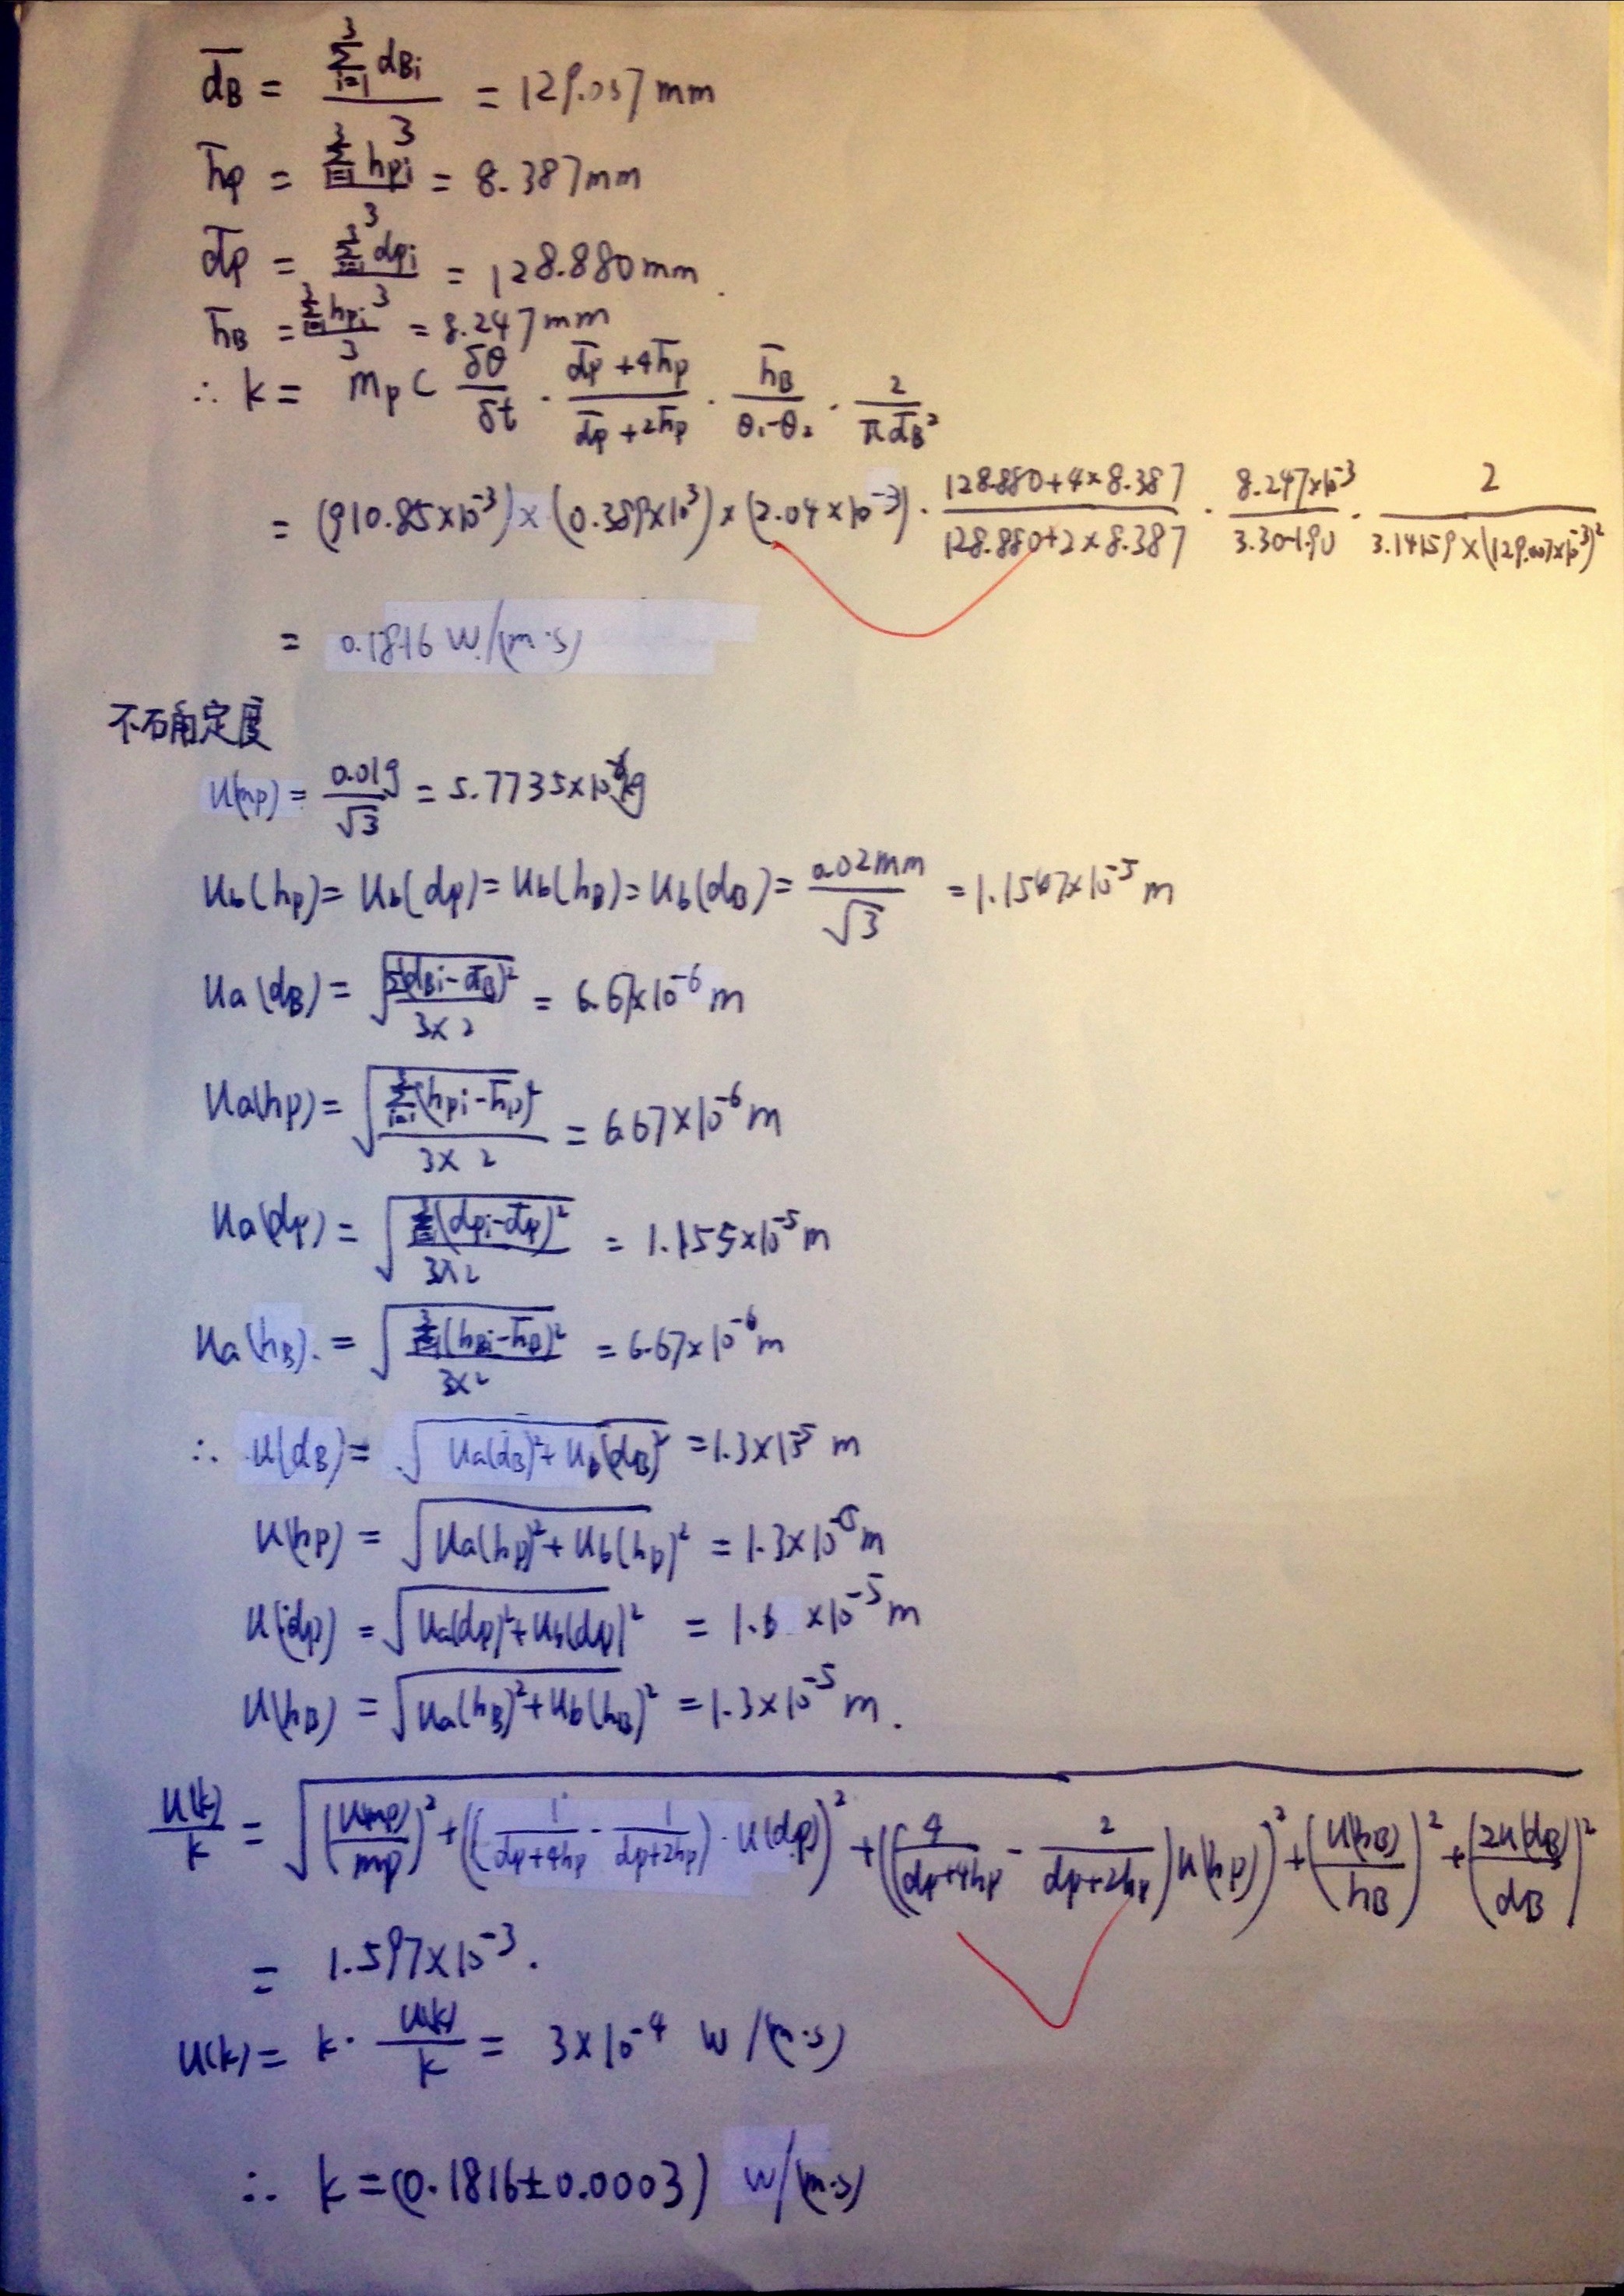 d̄B = Σ(i=1→3) dBi / 3 = 129.007 mm
h̄p = Σ(i=1→3) hpi / 3 = 8.387 mm
d̄p = Σ(i=1→3) dpi / 3 = 128.880 mm.
h̄B = Σ(i=1→3) hpi / 3 = 8.247 mm
∴ k = mp C δθ/δt · (d̄p + 4h̄p)/(d̄p + 2h̄p) · h̄B/(θ₁-θ₂) · 2/(π d̄B²)
= (910.85×10⁻³) × (0.389×10³) × (2.04×10⁻³) · (128.880+4×8.387)/(128.880+2×8.387) · 8.247×10⁻³/(3.30-1.90) · 2/(3.14159×(129.007×10⁻³)²)
= 0.1816 W/(m·s)
不确定度
u(mp) = 0.01g/√3 = 5.7735×10⁻⁶kg
ub(hp) = ub(dp) = ub(hB) = ub(dB) = 0.02mm/√3 = 1.1547×10⁻⁵ m
ua(dB) = √(Σ(dBi-d̄B)²/(3×2)) = 6.67×10⁻⁶ m
ua(hp) = √(Σ(i=1→3)(hpi-h̄p)²/(3×2)) = 6.67×10⁻⁶ m
ua(dp) = √(Σ(i=1→3)(dpi-d̄p)²/(3×2)) = 1.155×10⁻⁵ m
ua(hB). = √(Σ(i=1→3)(hBi-h̄B)²/(3×2)) = 6.67×10⁻⁶ m
∴ u(dB) = √(ua(dB)²+ub(dB)²) = 1.3×10⁻⁵ m
u(hp) = √(ua(hp)²+ub(hp)²) = 1.3×10⁻⁵ m
u(dp) = √(ua(dp)²+ub(dp)²) = 1.6 ×10⁻⁵ m
u(hB) = √(ua(hB)²+ub(hB)²) = 1.3×10⁻⁵ m.
u(k)/k = √((u(mp)/mp)² + ((1/(dp+4hp) - 1/(dp+2hp))·u(dp))² + ((4/(dp+4hp) - 2/(dp+2hp))u(hp))² + (u(hB)/hB)² + (2u(dB)/dB)²)
= 1.597×10⁻³.
u(k) = k· u(k)/k = 3×10⁻⁴ W/(m·s)
∴ k = (0.1816±0.0003) W/(m·s)